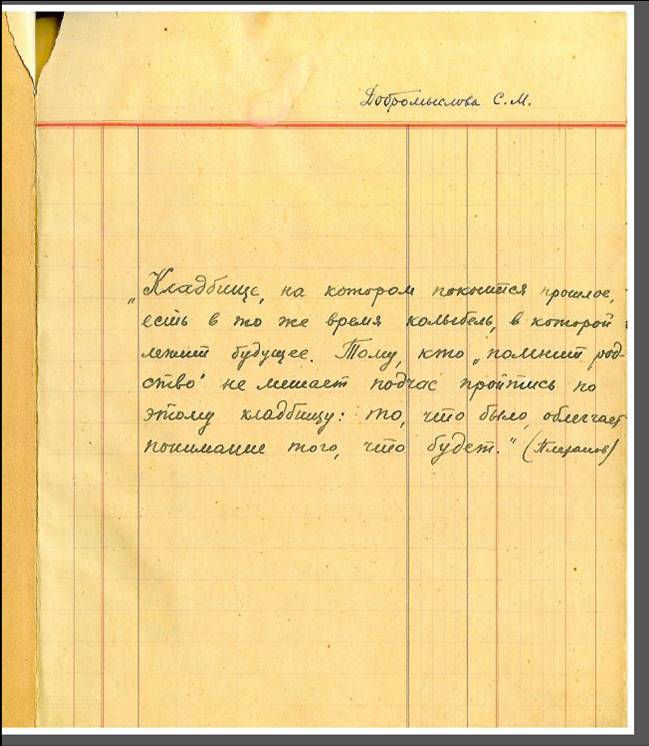 Добромыслова С.М.
„Кладбище, на котором покоится прошлое,
есть в то же время колыбель, в которой
лежит будущее. Тому, кто „помнит род-
ство" не мешает подчас пройтись по
этому кладбищу: то, что было, облегчает
понимание того, что будет." (Плеханов)